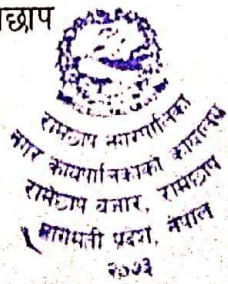 छाप
रामेछाप नगरपालिका
नगर कार्यपालिकाको कार्यालय
रामेछाप बजार, रामेछाप
बागमती प्रदेश, नेपाल
२०७३